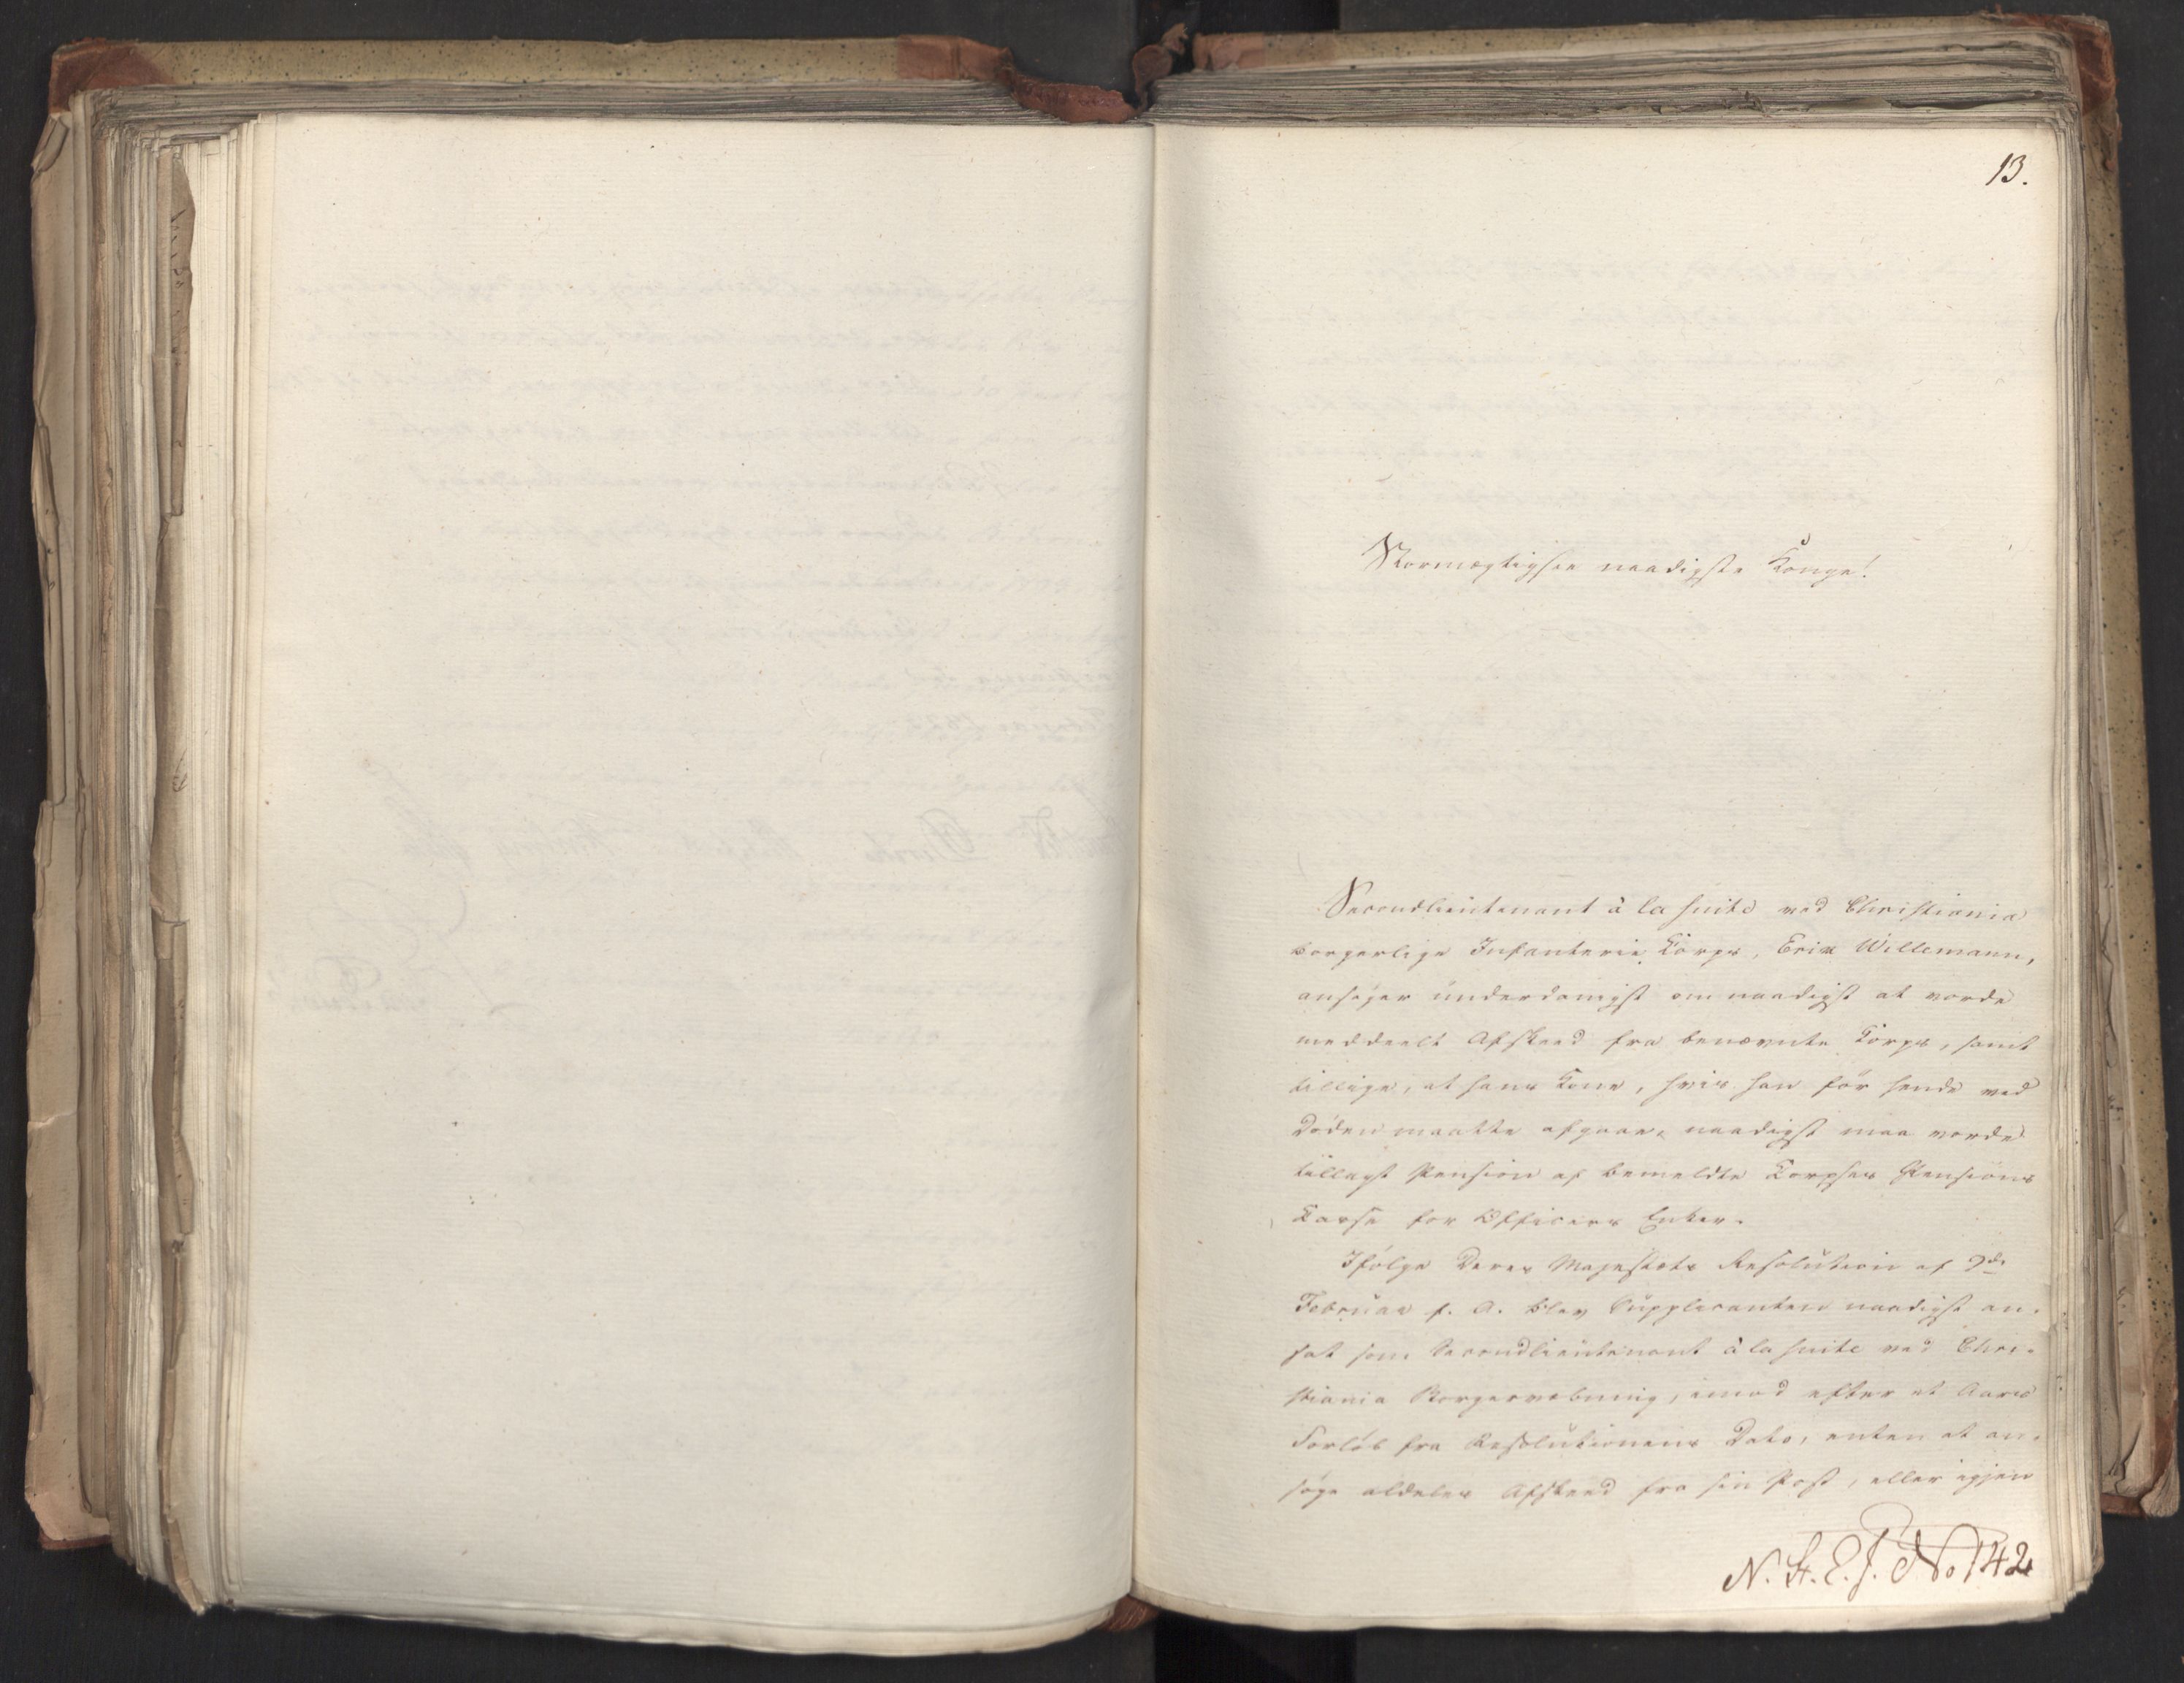 13.
Stormægtigste naadigste Konge!
Secondlieutenant à la suite ved Christiania
borgerlige Infanterie Korps, Erik Willemann,
ansøger underdanigst om naadigst at vorde
meddeelt Afskeed fra benævnte Korps, samt
tillige, at hans Kone, hvis han för hende ved
Döden maatte afgaae, naadigst maa vorde
tillagt Pension af bemeldte Korpses Pensions
Kasse for Officiers Enker.
Ifölge Deres Majestæts Resolution af 9de
Februar f. A. blev Supplicanten naadigst an-
sat som Secondlieutenant à la suite ved Chri-
stiania Borgervæbning, imod efter et Aars
Forlöb fra Resolutionens Dato, enten at an-
söge aldeles Afskeed fra sin Post, eller igjen
N. St. E. J. No 142